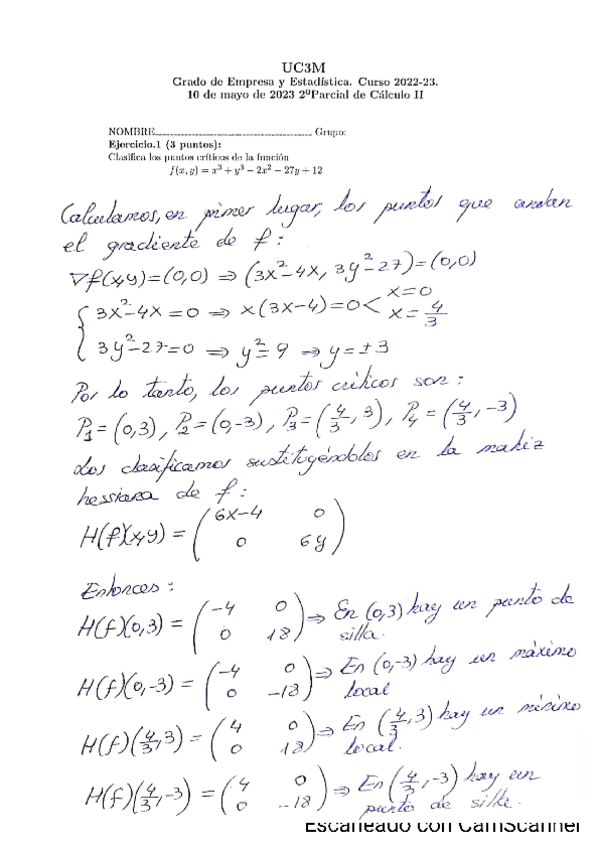 UC3M
Grado de Empresa y Estadística. Curso 2022-23.
10 de mayo de 2023 2ºParcial de Cálculo II
NOMBRE Grupo:
Ejercicio.1 (3 puntos):
Clasifica los puntos críticos de la función
f(x, y) = x³ + y³ − 2x² − 27y + 12
Calculamos, en primer lugar, los puntos que anulan
el gradiente de f:
∇f(x,y)=(0,0) ⇒ (3x²-4x, 3y²-27)=(0,0)
{ 3x²-4x=0 ⇒ x(3x-4)=0 < x=0 x=4/3
3y²-27=0 ⇒ y²=9 ⇒ y=±3
Por lo tanto, los puntos críticos son:
P₁=(0,3), P₂=(0,-3), P₃=(4/3, 3), P₄=(4/3, -3)
Los clasificamos sustituyéndolos en la matriz
hessiana de f:
H(f)(x,y) = (6x-4 0
0 6y)
Entonces:
H(f)(0,3) = (-4 0 ⇒ En (0,3) hay un punto de
0 18) silla.
H(f)(0,-3) = (-4 0 ⇒ En (0,-3) hay un máximo
0 -18) local
H(f)(4/3,3) = (4 0 ⇒ En (4/3,3) hay un mínimo
0 18) local.
H(f)(4/3,-3) = (4 0 ⇒ En (4/3,-3) hay un
0 -18) punto de silla.
Escaneado con CamScanner